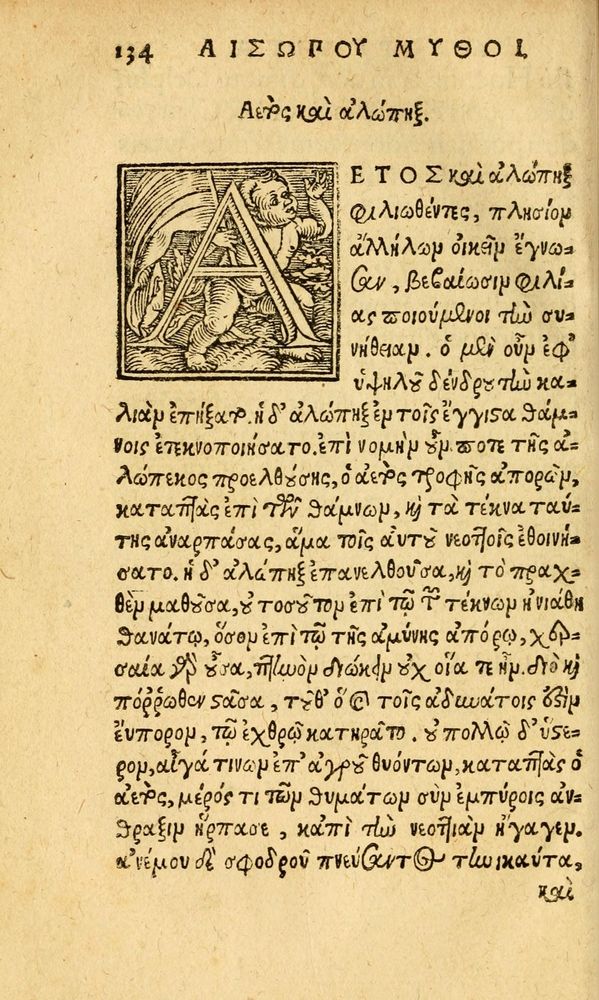 134 ΑΙΣΩΠΟΥ ΜΥΘΟΙ.
Αετὸς καὶ ἀλώπηξ.
ΑΕΤΟΣ καὶ ἀλώπηξ
φιλιωθέντες, πλησίον
ἀλλήλων οἰκεῖν ἔγνω-
σαν, βεβαίωσιν φιλί-
ας ποιούμενοι τὴν συ-
νήθειαν. ὁ μὲν οὖν ἐφ’
ὑψηλοῦ δένδρου τὴν κα-
λιὰν ἐπήξατο. ἡ δ’ ἀλώπηξ ἐν τοῖς ἔγγιστα θάμ-
νοις ἐτεκνοποιήσατο. ἐπὶ νομὴν οὖν ποτε τῆς ἀ-
λώπεκος προελθούσης, ὁ ἀετὸς τροφῆς ἀπορῶν,
καταπτὰς ἐπὶ τῶν θάμνων, καὶ τὰ τέκνα ταύ-
της ἀναρπάσας, ἅμα τοῖς αὑτοῦ νεοττοῖς ἐθοινή-
σατο. ἡ δ’ ἀλώπηξ ἐπανελθοῦσα, καὶ τὸ πραχ-
θὲν μαθοῦσα, οὐ τοσοῦτον ἐπὶ τῷ τῶν τέκνων ἠνιάθη
θανάτῳ, ὅσον ἐπὶ τῷ τῆς ἀμύνης ἀπόρῳ, χερ-
σαία γὰρ οὖσα, πτηνὸν διώκειν οὐχ οἵα τε ἦν. διὸ καὶ
πόῤῥωθεν στᾶσα, τοῦθ’ ὃ καὶ τοῖς ἀδυνάτοις ἐστὶν
εὔπορον, τῷ ἐχθρῷ κατηρᾶτο. οὐ πολλῷ δ’ ὕστε-
ρον, αἶγά τινων ἐπ’ ἀγροῦ θυόντων, καταπτὰς ὁ
ἀετὸς, μέρός τι τῶν θυμάτων σὺν ἐμπύροις ἄν-
θραξιν ἥρπασε, κἀπὶ τὴν νεοττιὰν ἤγαγεν.
ἀνέμου δὲ σφοδροῦ πνεύσαντος τηνικαῦτα,
καὶ